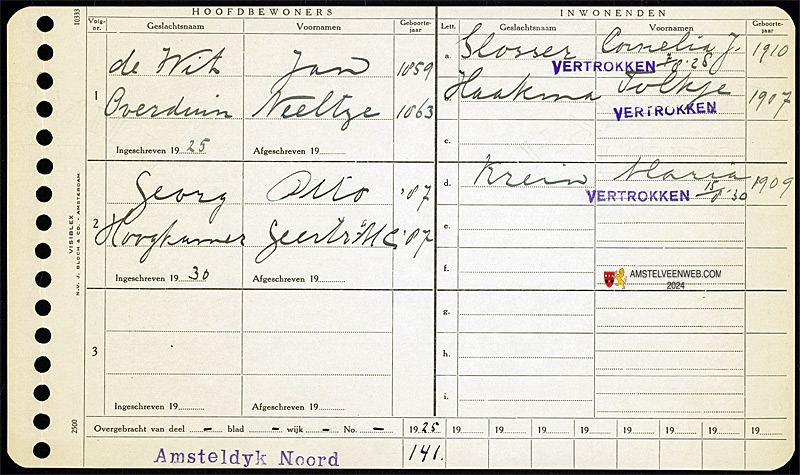 HOOFDBEWONERS
Volg-nor. Geslachtsnaam Voornamen Geboorte-jaar
1 de Wit Jan 1859
Overduin Neeltze 1863
Ingeschreven 19 25 Afgeschreven 19
2 Georg Otto '87
Hoogkamer Geertr. M C '87
Ingeschreven 19 30 Afgeschreven 19
3
Ingeschreven 19 Afgeschreven 19
INWONENDEN
Lett. Geslachtsnaam Voornamen Geboorte-jaar
a. Slosser Cornelia J. 1910
VERTROKKEN
b. Haakma Tolkje 1907
VERTROKKEN
c.
d. Krein Maria 1909
VERTROKKEN 15/8-30
e.
f.
AMSTELVEENWEB.COM
2024
g.
h.
i.
Overgebracht van deel — blad — wijk — No. — 19 25 19 19 19 19 19 19 19 19 19
Amsteldyk Noord 141.
10333
VISIBLEX
N.V. J. BLOCH & CO. AMSTERDAM
2500